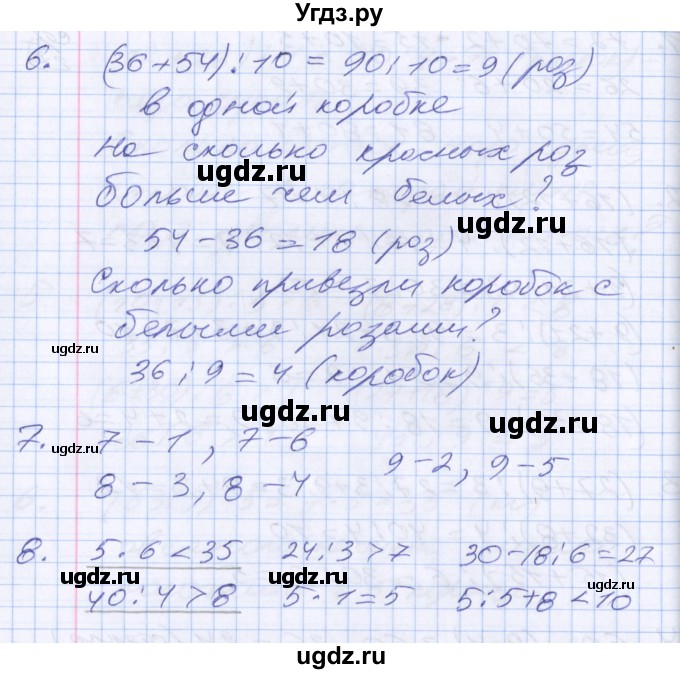 Угдз.ру
6. (36+54):10 = 90:10=9 (роз)
в одной коробке
На сколько красных роз
больше чем белых?
ugdz.ru
54-36=18 (роз)
ugdz.ru
Сколько привезли коробок с
белыми розами?
ugdz.ru
ugdz.ru
36:9=4 (коробок)
ugdz.ru
7. 7-1, 7-6
9-2, 9-5
ugdz.ru
8-3, 8-4
8. 5·6<35 24:3>7 30-18:6=27
ugdz.ru ugdz.ru
40:4>8 5·1=5 5:5+8<10
ugdz.ru
ugdz.ru